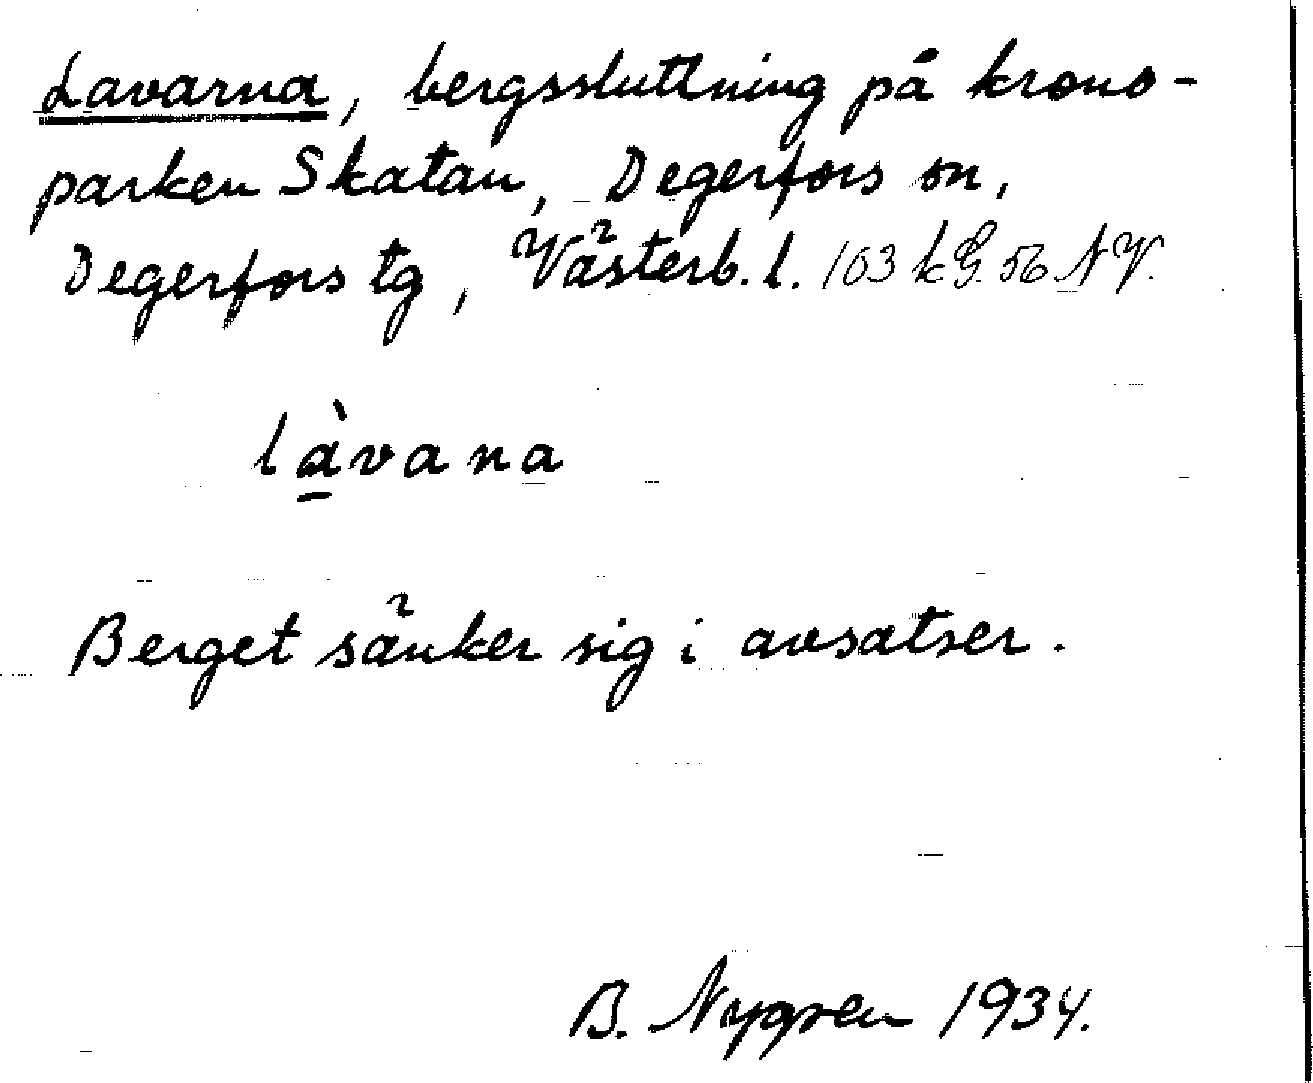 Lavarna, bergssluttning på krono-
parken Skatan, Degerfors sn,
Degerfors tg, Västerb. l. 103 kG. 56 NV.
là̱vana
Berget sänker sig i avsatser.
B. Nygren 1934.